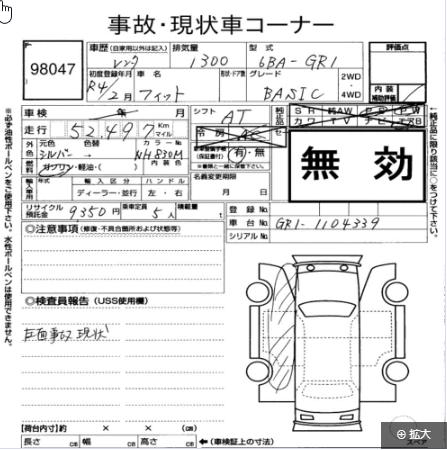 事故・現状車コーナー
98047
車歴(自家用以外は記入)
レンタ
排気量
1300
型式
6BA-GR1
評価点
初度登録年月
R4/2月
車名
フィット
形状・ドア数
グレード
BASIC
2WD
4WD
内装
補助評価
車検
年
月
シフト
AT
走行
52,497
Km
マイル
冷房
AC
外色
元色
シルバー
色替
→
カラーNo
NH830M
内装色
ガソリン・軽油・( )
(保証書付) 有・無
無効
輸入車用
年式
輸入区分
ハンドル
ディーラー・並行
左・右
名義変更期限
月 日
リサイクル預託金
9,350円
乗車定員
5人
積載量
t
登録No.
車台No.
GR1-1104339
シリアルNo.
◎注意事項(修復・不具合箇所および状態等)
◎検査員報告(USS使用欄)
右面事故現状
【荷台内寸】約 × × (cm)
長さ cm 幅 cm 高さ cm ←(車検証上の寸法)
スペア
拡大
※必ず油性ボールペンをご使用下さい。水性ボールペンは使用できません。
←純正品に限り該当に○をつけて下さい。